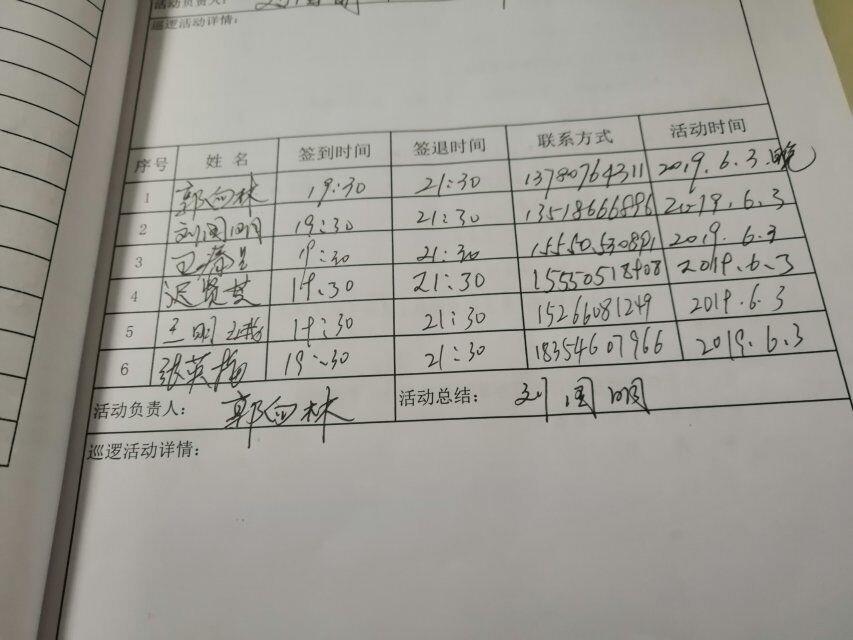 活动负责人：
巡逻活动详情：
序号 姓名 签到时间 签退时间 联系方式 活动时间
1 郭向林 19:30 21:30 13780764311 2019.6.3.晚
2 刘国明 19:30 21:30 13518666896 2019.6.3
3 19:30 21:30 15550530891 2019.6.3
4 迟贤芝 19:30 21:30 15550518408 2019.6.3
5 19:30 21:30 15266081249 2019.6.3
6 张英梅 19:30 21:30 18354607966 2019.6.3
活动负责人： 郭向林 活动总结： 刘国明
巡逻活动详情：